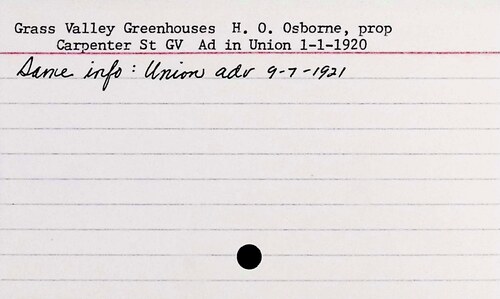 Grass Valley Greenhouses H. O. Osborne, prop
Carpenter St GV Ad in Union 1-1-1920
Same info: Union adv 9-7-1921